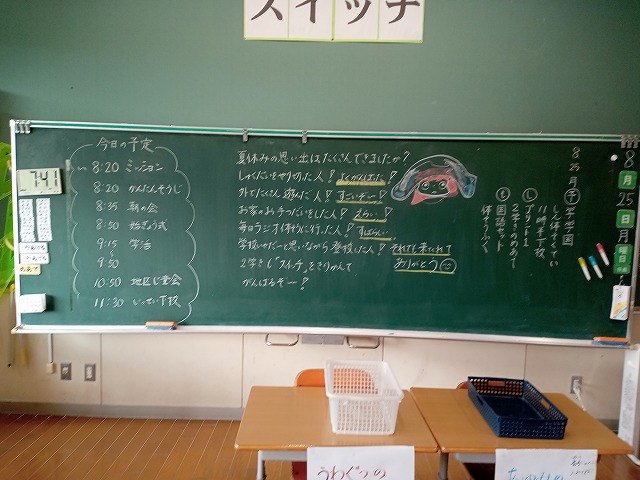 スイッチ
今日の予定
8:20 ミッション
8:20 かんたんそうじ
8:35 朝の会
8:50 始ぎょう式
9:15 学活
9:50
10:50 地区じ童会
11:30 いっせい下校
夏休みの思い出はたくさんできましたか?
しゅくだいをやり切った人! よくがんばった!
外でたくさん遊んだ人! すごいぞ~!
お家のお手つだいをした人! えらい!
毎日ラジオ体そうに行った人! すばらしい
学校いやだ~と思いながら登校した人! それでも来てくれて
ありがとう
2学きも「スイッチ」をきりかえて
がんばるぞ~!
8 25 月
11時半下校
プリント1
2学きのめあて
国語セット
体そうふく
8
月
25
日
月
曜日
7:41
うわぐつの